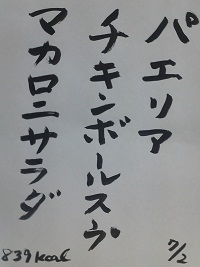 パエリア
チキンボールスープ
マカロニサラダ
7/2
839 kcal